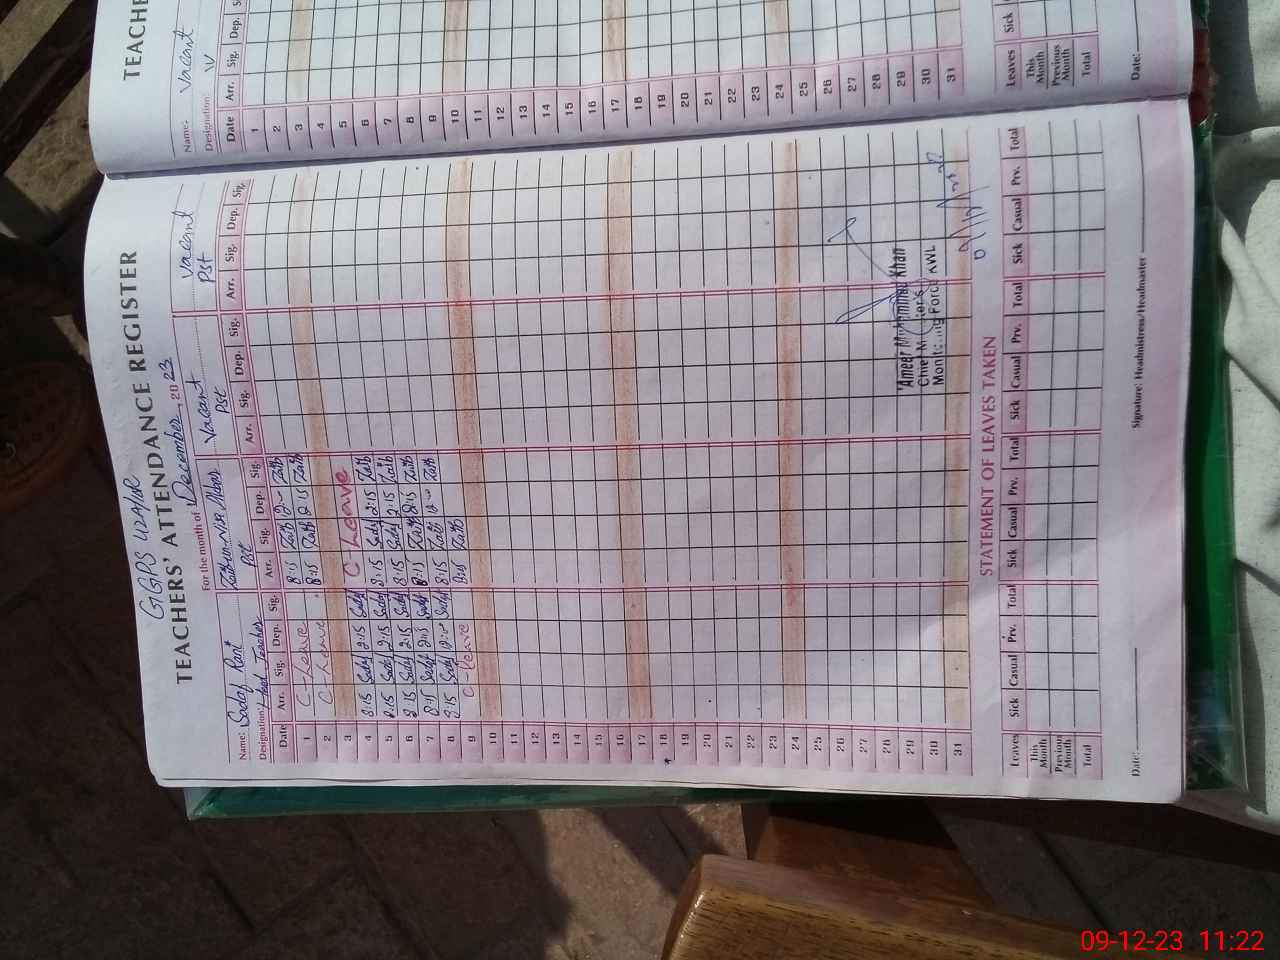 GGPS 42A/1R
TEACHERS' ATTENDANCE REGISTER
For the month of December 2023
Name: Sadaf Rani Zaib-un-Nisa Vacant Vacant
Designation: Head Teacher Pst Pst Pst
Date Arr. Sig. Dep. Sig. Arr. Sig. Dep. Sig. Arr. Sig. Dep. Sig. Arr. Sig. Dep. Sig.
1 C-Leave 8:15 Zaib 12-- Zaib
2 C-Leave 8:15 Zaib 2:15 Zaib
3
4 8:15 Sadaf 2:15 Sadaf C-Leave
5 8:15 Sadaf 2:15 Sadaf 8:15 Sadaf 2:15 Zaib
6 8:15 Sadaf 2:15 Sadaf 8:15 Sadaf 2:15 Zaib
7 8:15 Sadaf 2:15 Sadaf 8:15 Zaib 2:15 Zaib
8 8:15 Sadaf 12:-- Sadaf 8:15 Zaib 12-- Zaib
9 C-leave 8:15 Zaib
10
11
12
13
14
15
16
17
18
19
20
21
22
23
24
25
26
27
28
29
30
31
Ameer Muhammad Khan
Chief Minister's
Monitoring Force KWL
STATEMENT OF LEAVES TAKEN
Leaves Sick Casual Prv. Total Sick Casual Prv. Total Sick Casual Prv. Total Sick Casual Prv. Total
This Month
Previous Month
Total
Date: Signature: Headmistress/Headmaster
TEACHE
Name: Vacant
Designation:
Date Arr. Sig. Dep.
1
2
3
4
5
6
7
8
9
10
11
12
13
14
15
16
17
18
19
20
21
22
23
24
25
26
27
28
29
30
31
Leaves Sick
This Month
Previous Month
Total
Date:
09-12-23 11:22